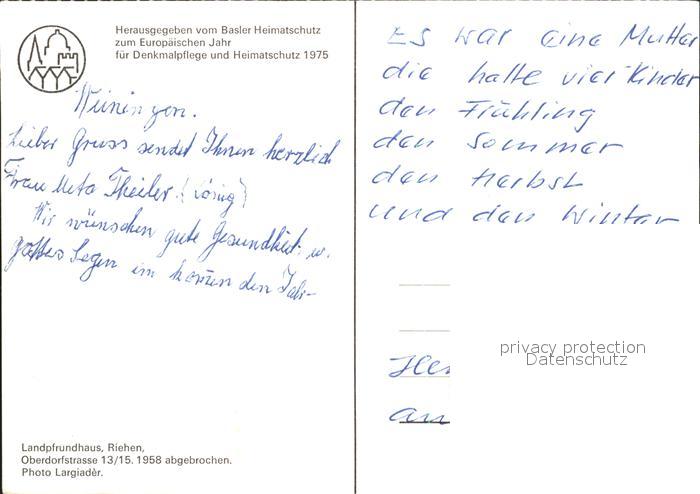 Herausgegeben vom Basler Heimatschutz
zum Europäischen Jahr
für Denkmalpflege und Heimatschutz 1975
Weiningen.
Lieber Gruss sendet Ihnen herzlich
Frau Meta Theiler
Wir wünschen gute Gesundheit u.
gottes Segen im kommenden Jahr
Landpfrundhaus, Riehen,
Oberdorfstrasse 13/15. 1958 abgebrochen.
Photo Largiadèr.
Es war eine Mutter
die hatte vier Kinder
den Frühling
den Sommer
den Herbst
und den Winter
privacy protection
Datenschutz